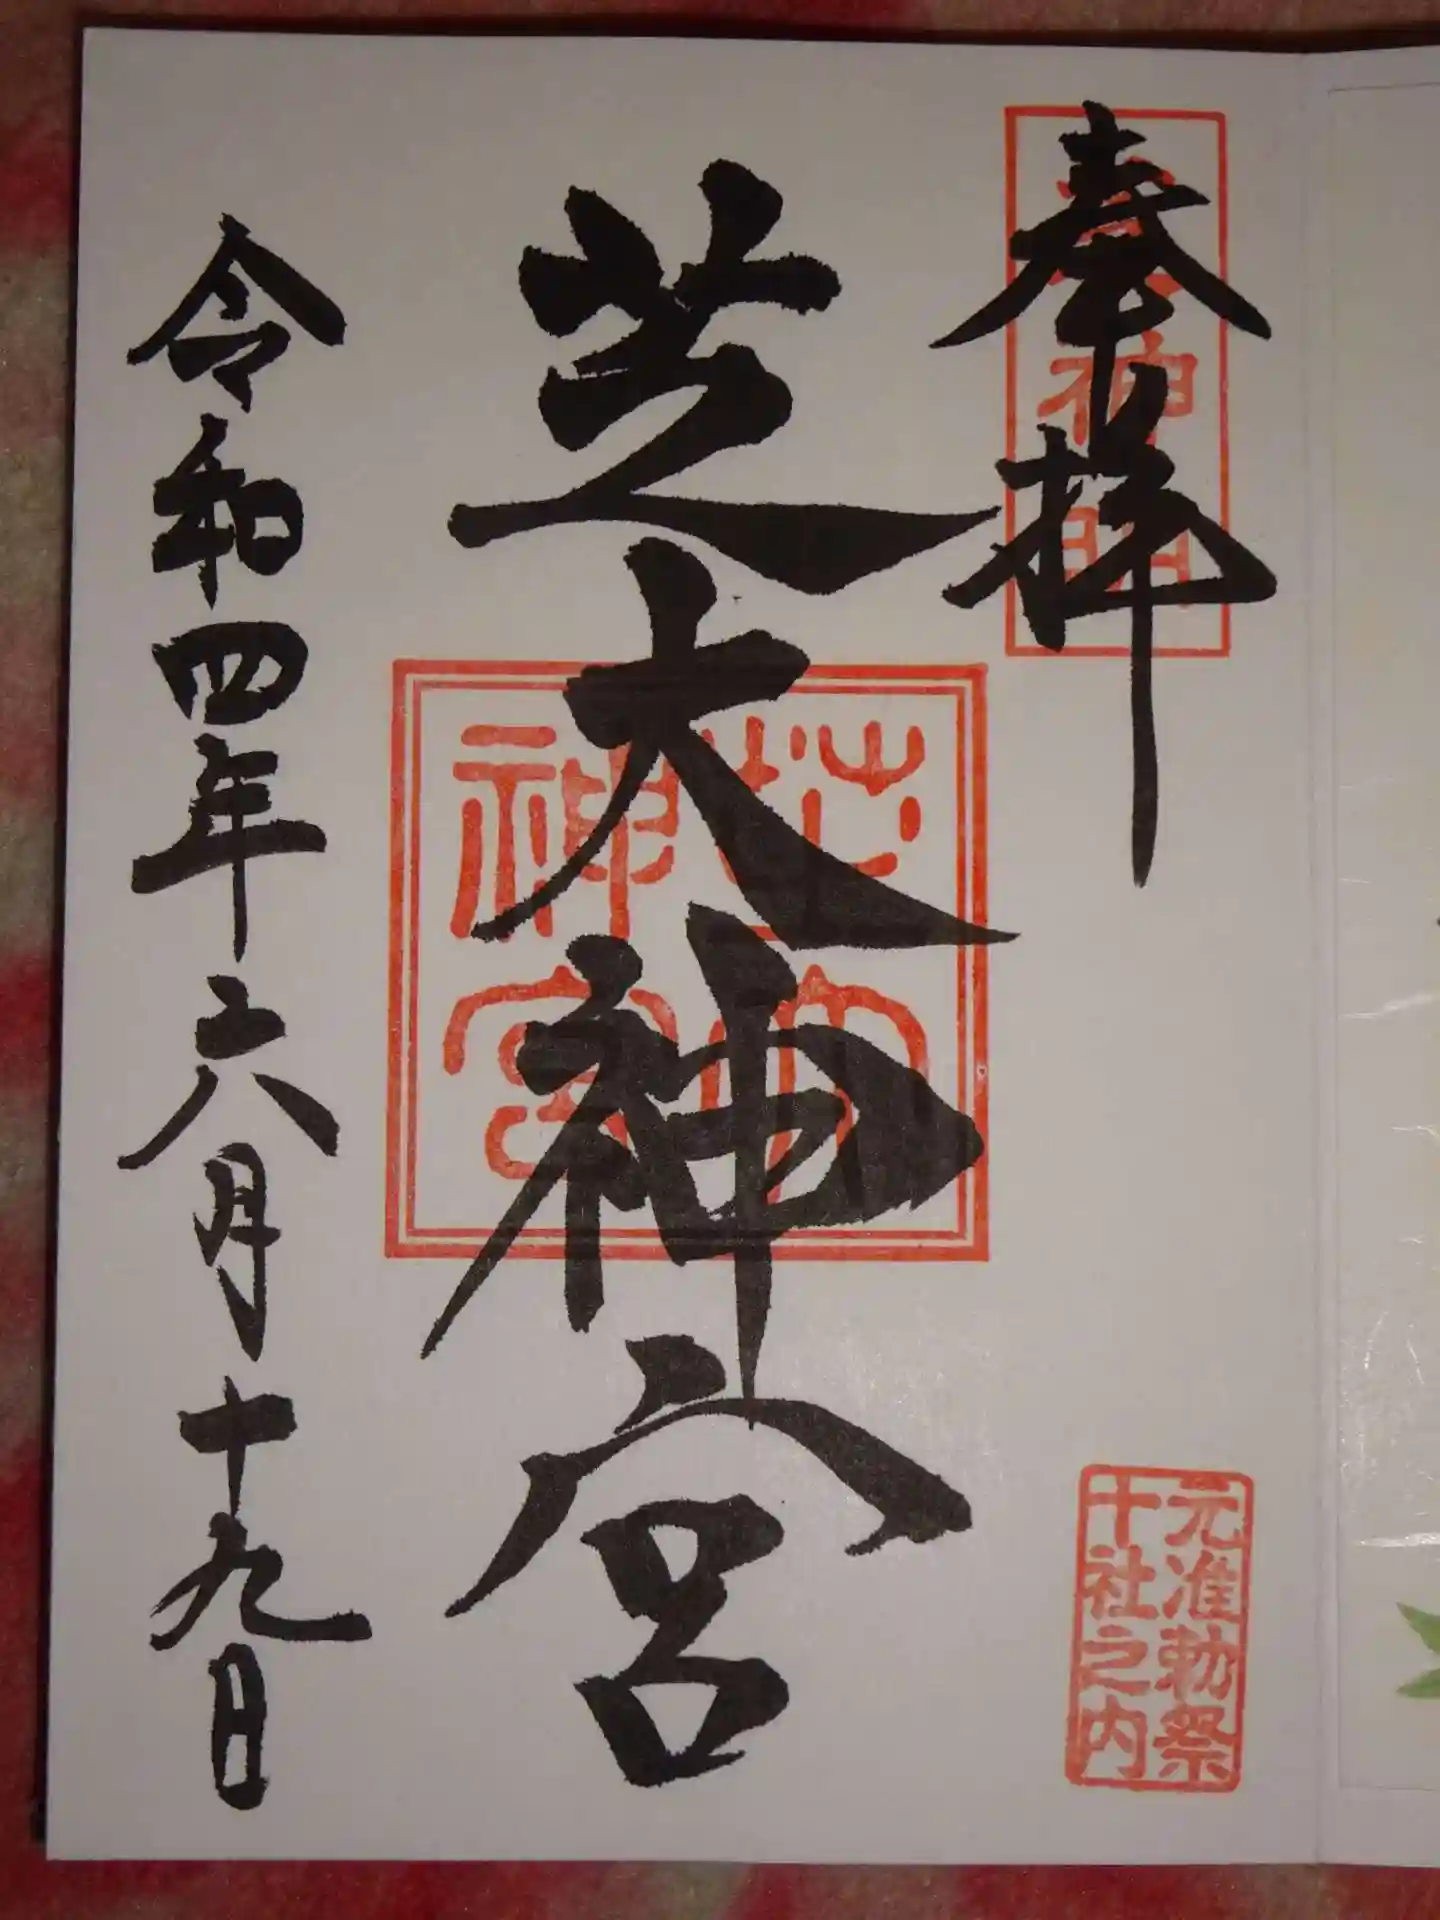 奉拝
元准勅祭
十社之内
芝大神宮
芝大
神宮
令和四年六月十九日